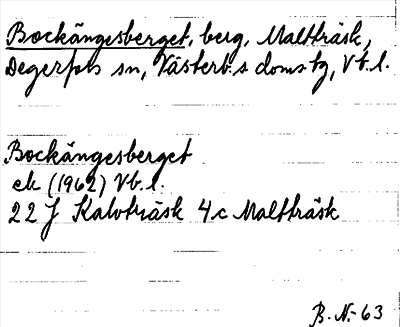 Bockängesberget, berg, Maltträsk,
Degerfors sn, Västerb:s doms tg, Vb.l.
Bockängesberget
ek (1962) Vb.l.
22 J Kalvträsk 4c Maltträsk
B.N-63